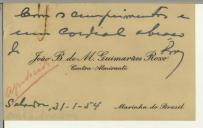 Com os cumprimentos e
um cordial abraço
do
João B. de M. Guimarães Roxo
Contra-Almirante
Salvador, 31-1-54 Marinha do Brasil